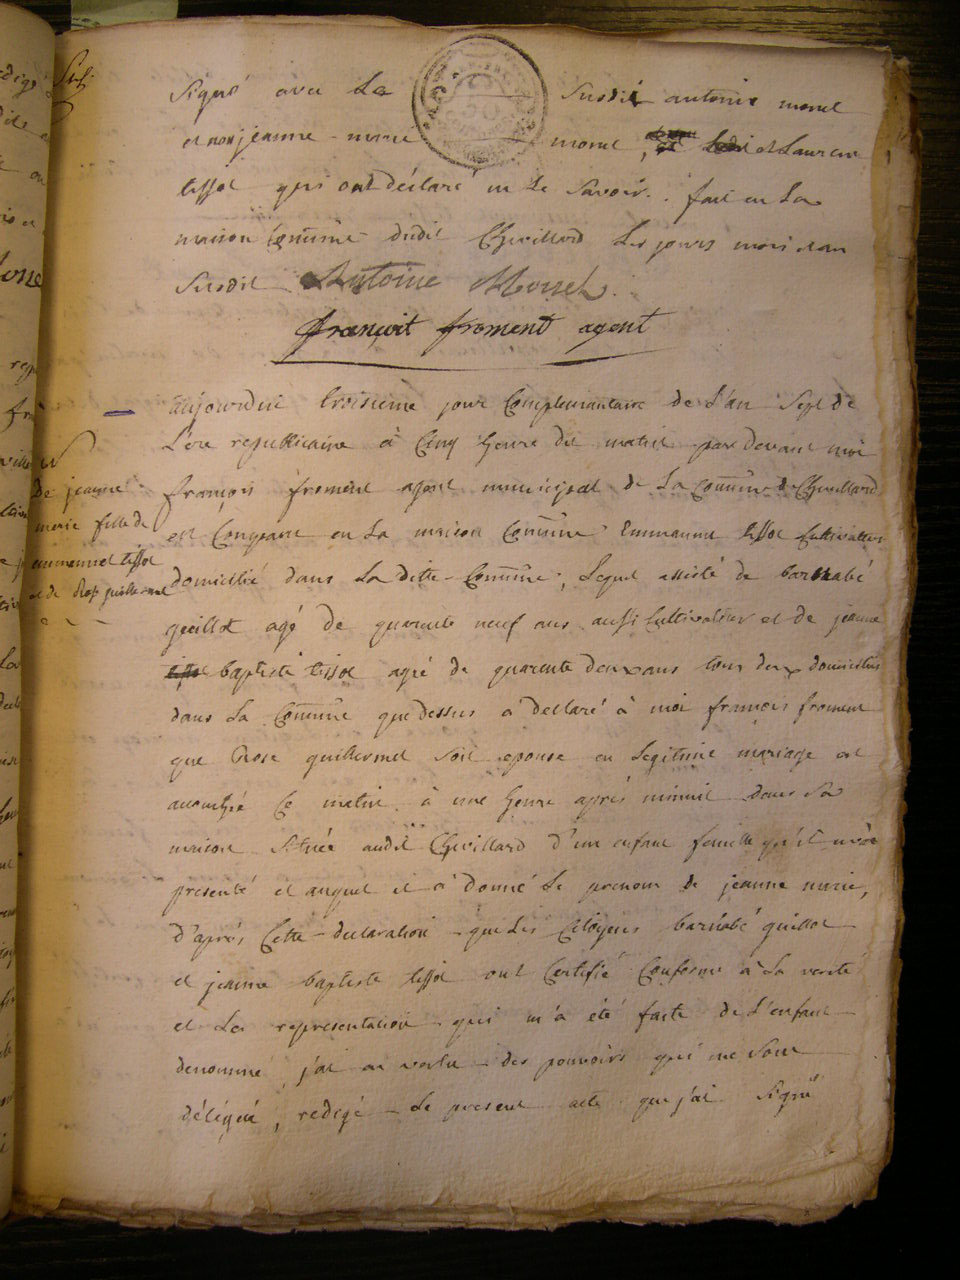 signé avec le susdit antoine monel
et non jeanne marie monel, et Laurent
tissot qui ont déclaré ne le savoir. fait en la
maison comūne dudit Chevillard Les jours mois et an
susdit Antoine Monel
françoit froment agent
aujourdui troisieme jour Complementaire de L'an Sept de
L'ere republicaine à Cinq heure du matin par devant moi
françois froment agent municipal de La Comūne de Chevillard
est Comparut en La maison Comūne Emmanuel tissot Cultivateur
domicilié dans La ditte Comūne, Lequel assisté de barnabé
guillot agé de quarente neuf ans aussi Cultivateur et de jeanne
baptiste tissot agée de quarente deux ans tous deux domiciliés
dans La Comūne que dessus a declaré à moi françois froment
que Rose guillermet soit epouse en Legitime mariage est
accouchée Ce matin à une heure après minuit dans sa
maison Située audit Chevillard d'un enfant femelle qu'il m'a
presenté et auquel il a donné Le prenom de jeanne marie,
d'après Cette declaration que Les Citoyens barnabé guillot
et jeanne baptiste tissot ont Certifié Conforme à La verité
et La representation qui m'a été faite de L'enfant
denommé, j'ai en vertu des pouvoirs qui me sont
délégué, redigé Le present acte que j'ai Signé
N
De jeanne
marie fille de
emmanuel tissot
et de Rose guillermet